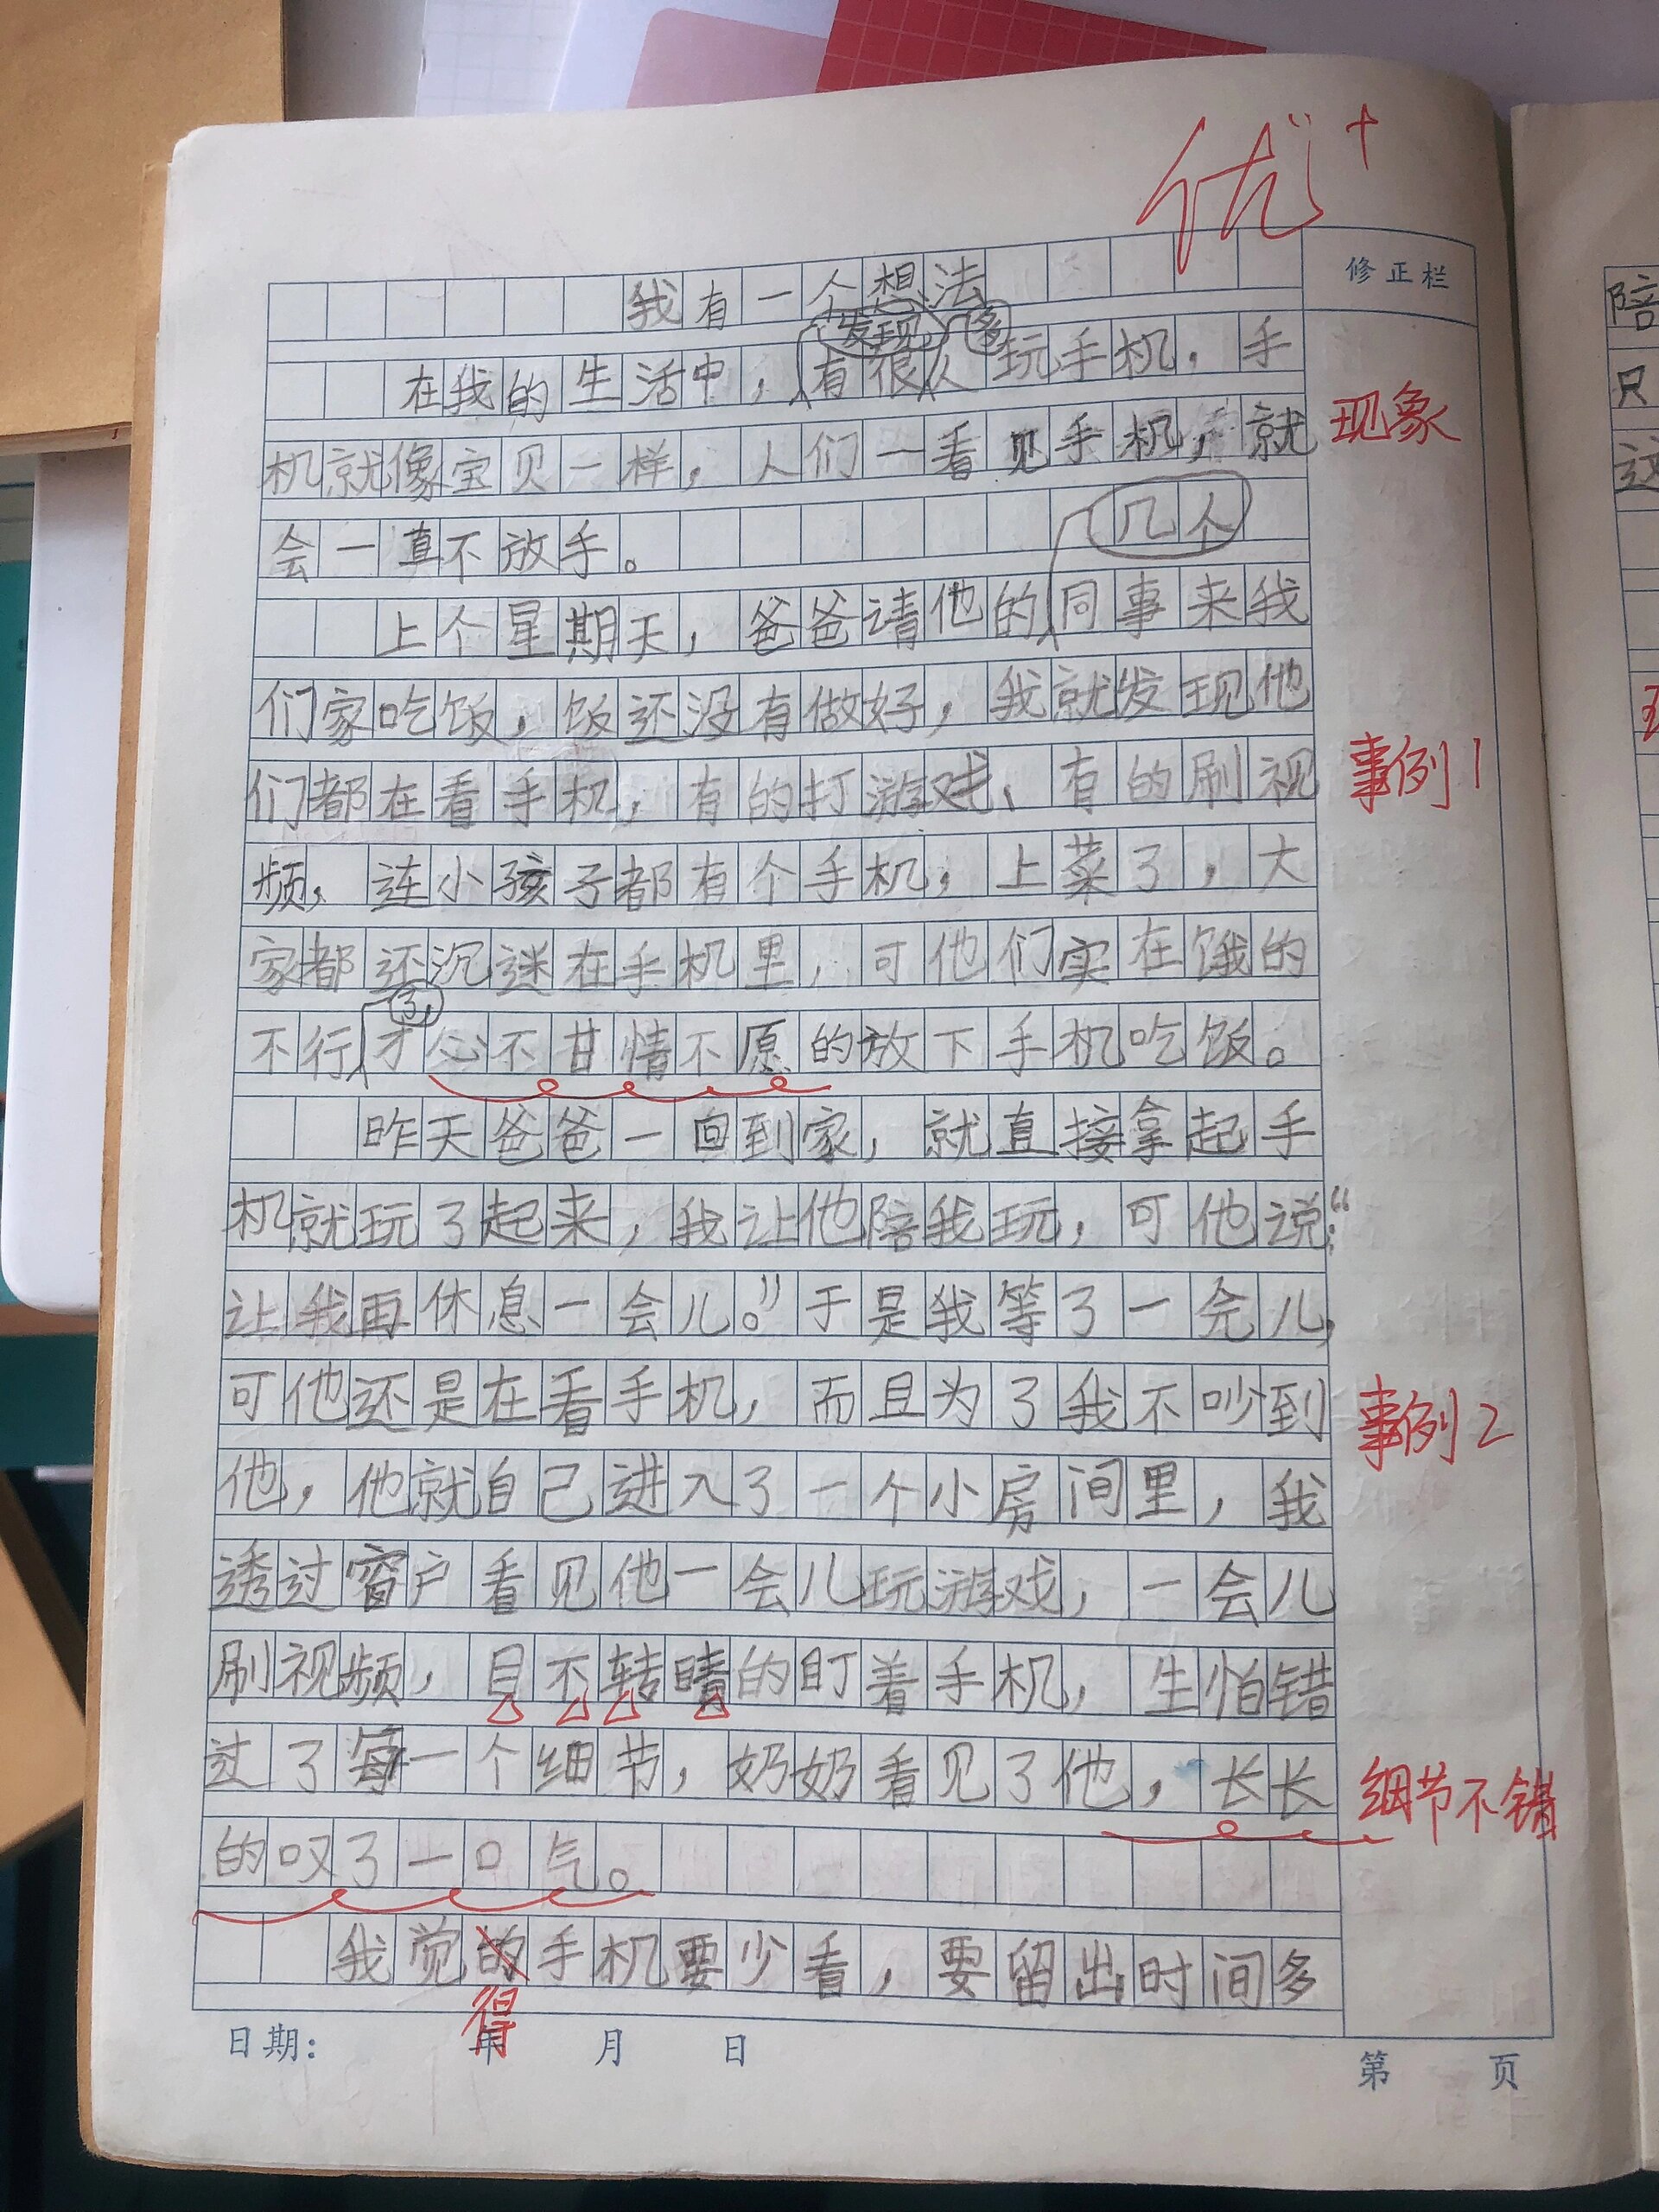 优+
修正栏
我有一个想法
发现 多
在我的生活中，有很人玩手机，手
现象
机就像宝贝一样，人们一看见手机，就
几个
会一直不放手。
上个星期天，爸爸请他的同事来我
们家吃饭，饭还没有做好，我就发现他
们都在看手机，有的打游戏、有的刷视
事例1
频，连小孩子都有个手机，上菜了，大
家都还沉迷在手机里，可他们实在饿的
了，
不行才心不甘情不愿的放下手机吃饭。
昨天爸爸一回到家，就直接拿起手
机就玩了起来，我让他陪我玩，可他说：“
让我再休息一会儿。”于是我等了一会儿，
可他还是在看手机，而且为了我不吵到
事例2
他，他就自己进入了一个小房间里，我
透过窗户看见他一会儿玩游戏，一会儿
刷视频，目不转睛的盯着手机，生怕错
过了每一个细节，奶奶看见了他，长长
细节不错
的叹了一口气。
我觉的手机要少看，要留出时间多
得
日期： 年 月 日
第 页
陪
只
这